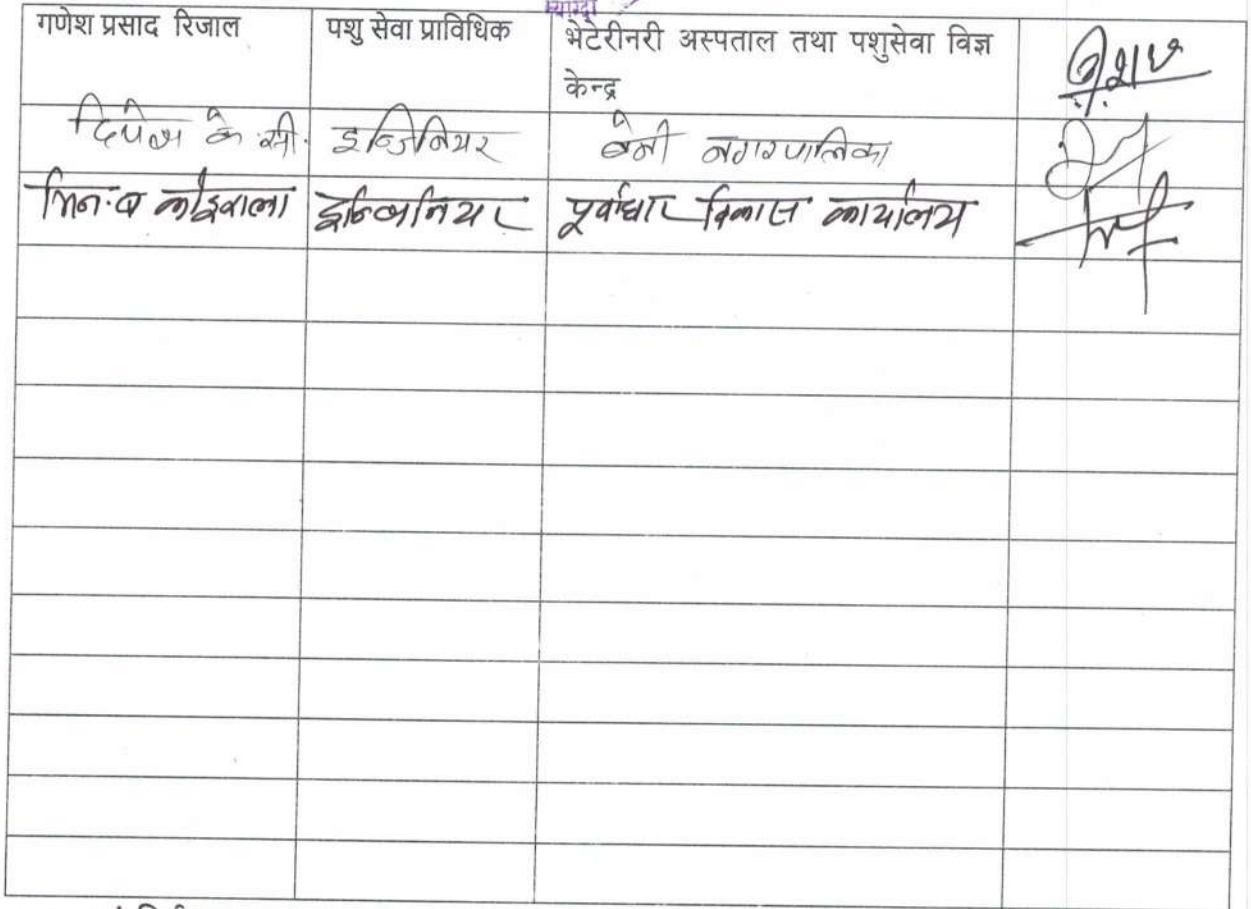 म्याग्दी
गणेश प्रसाद रिजाल पशु सेवा प्राविधिक भेटेरीनरी अस्पताल तथा पशुसेवा विज्ञ
केन्द्र
दिपेश के.सी. इन्जिनियर बेनी नगरपालिका
मिन.ब कोइराला इन्जिनियर पूर्वाधार विकास कार्यालय